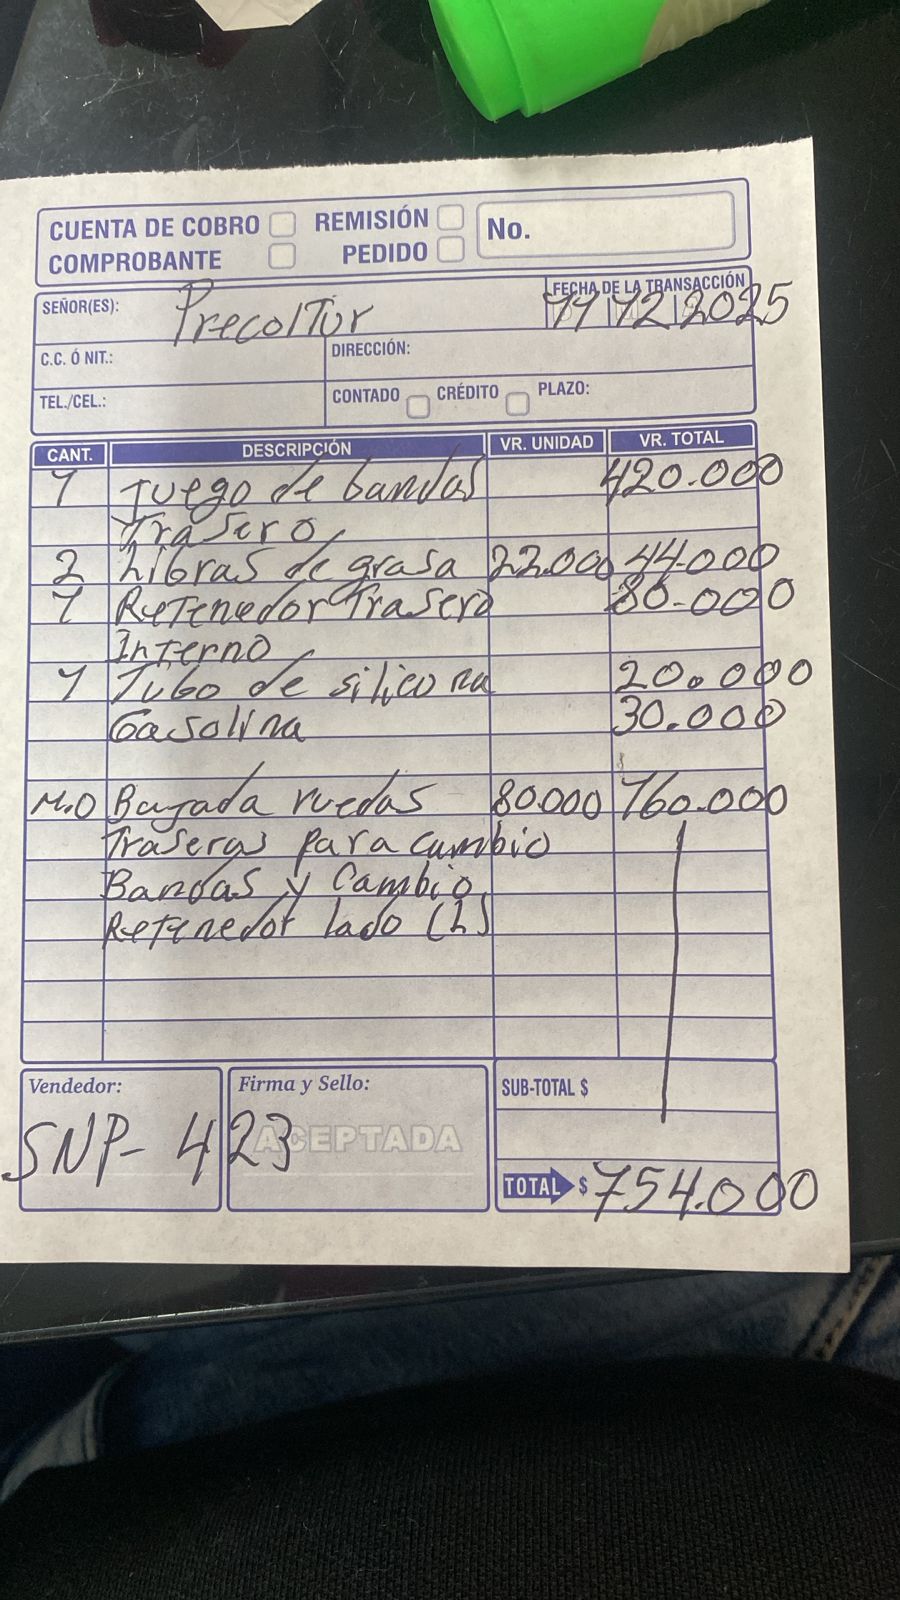 CUENTA DE COBRO REMISIÓN No.
COMPROBANTE PEDIDO
SEÑOR(ES): Precoltur FECHA DE LA TRANSACCIÓN 11 12 2025
C.C. Ó NIT.: DIRECCIÓN:
TEL./CEL.: CONTADO CRÉDITO PLAZO:
CANT. DESCRIPCIÓN VR. UNIDAD VR. TOTAL
1 Juego de bandas 420.000
Trasero
2 Libras de grasa 22.000 44.000
1 Retenedor Trasero 80.000
Interno
1 Tubo de silicona 20.000
Gasolina 30.000
M.O Bajada ruedas 80.000 160.000
Traseras para cambio
Bandas y Cambio
Retenedor lado (L)
Vendedor: Firma y Sello: SUB-TOTAL $
SNP-423 ACEPTADA
TOTAL $ 754.000